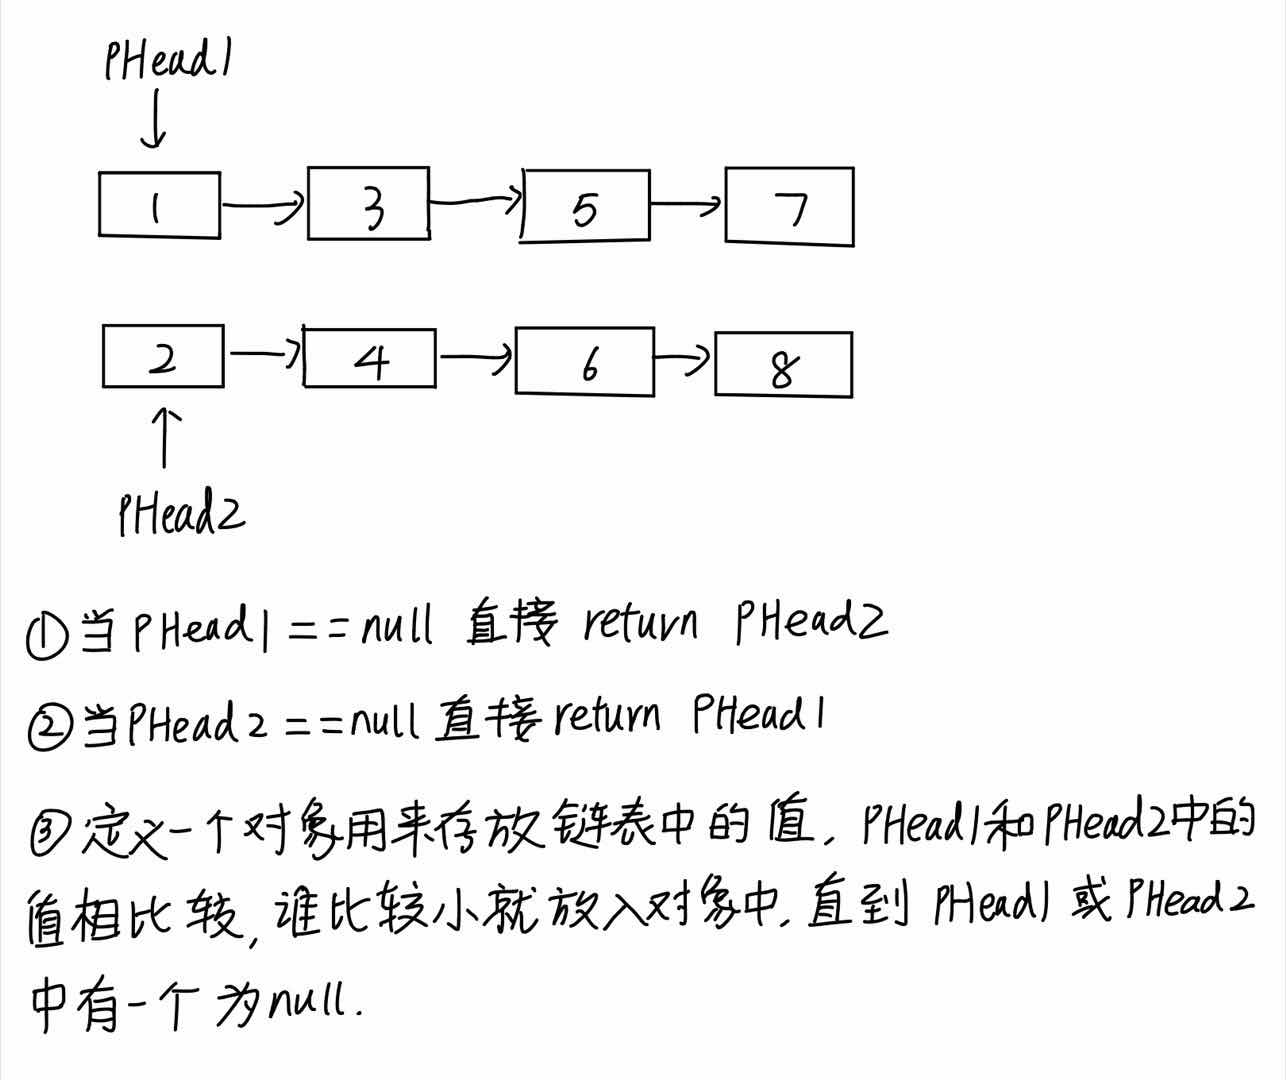 PHead1
1 3 5 7
2 4 6 8
PHead2
①当PHead1==null 直接 return PHead2
②当PHead2==null直接return PHead1
③定义一个对象用来存放链表中的值，PHead1和PHead2中的
值相比较,谁比较小就放入对象中.直到PHead1或PHead2
中有一个为null.